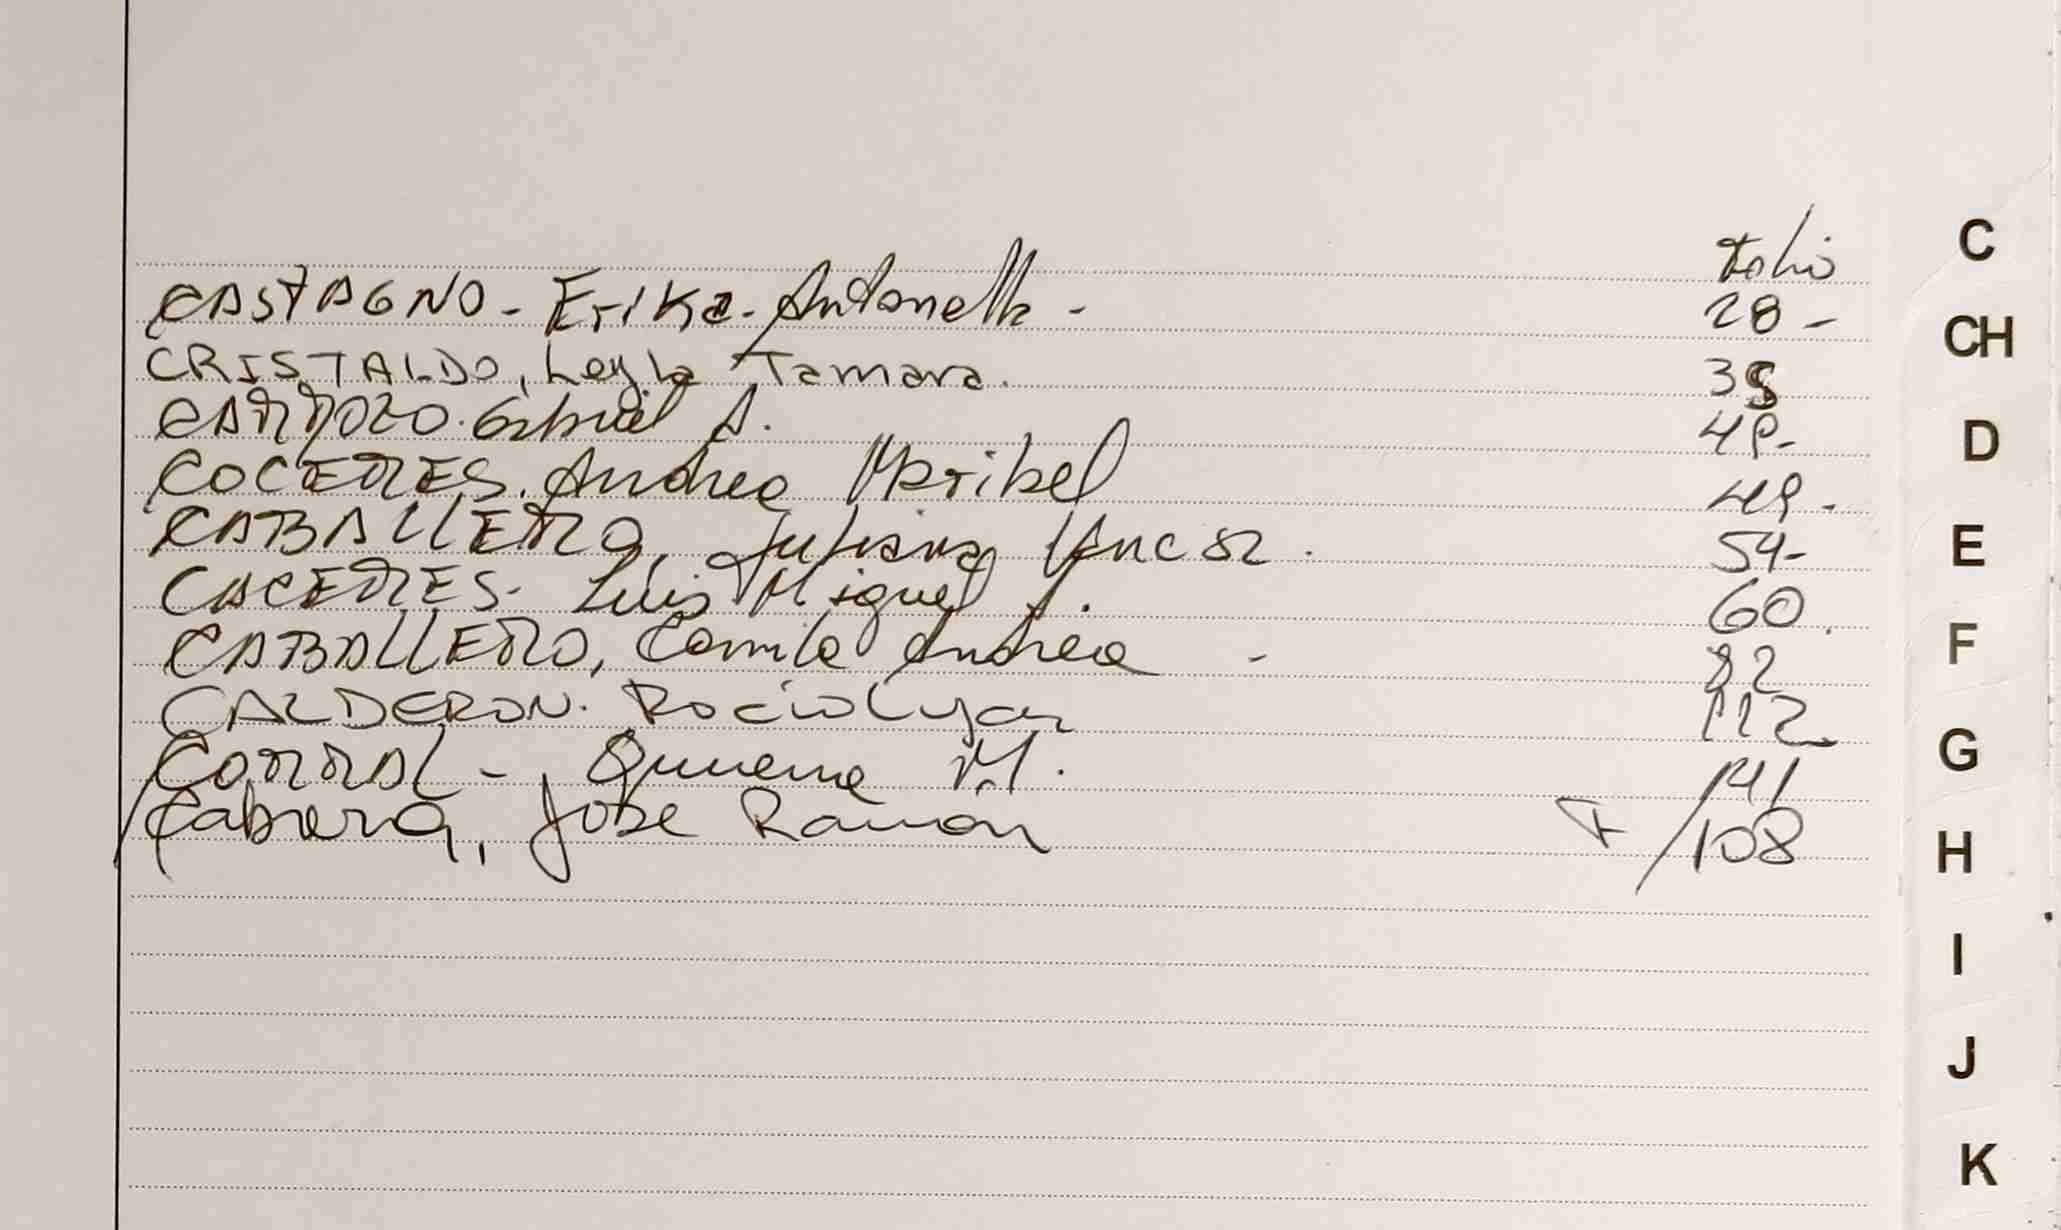 Folio
CASTAGNO - Erika - Antonella - 28 -
CRISTALDO, Leyla Tamara. 38
CARDOZO. Gabriel A. 48 -
COCERES. Andrea Maribel 49 -
CABALLERO, Juliana 54 -
CACERES. Luis Miguel J. 60.
CABALLERO, Camila Andrea - 82
CALDERON. Rocio 112
CORRAL - M. 141
Cabrera, Jose Ramón F/108
C
CH
D
E
F
G
H
I
J
K